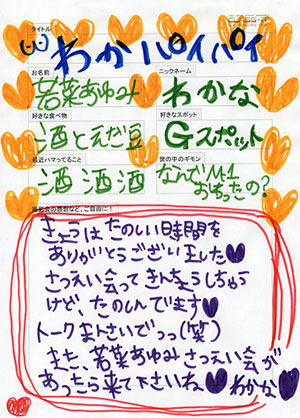 タイトル
わかパイパイ
お名前
ニックネーム
若菜あゆみ
わかな
好きな食べ物
好きなスポット
酒とえだ豆
Gスポット
最近ハマってること
世の中のギモン
酒酒酒
なんでM-1
おちったの?
撮影会の感想など、ご自由に!
きょうはたのしい時間を
ありがとうございました
さつえい会ってきんちょうしちゃう
けど、たのしんでます
トークまトさいでっっ(笑)
また、若菜あゆみさつえい会が
あっちら来て下さいね わかな